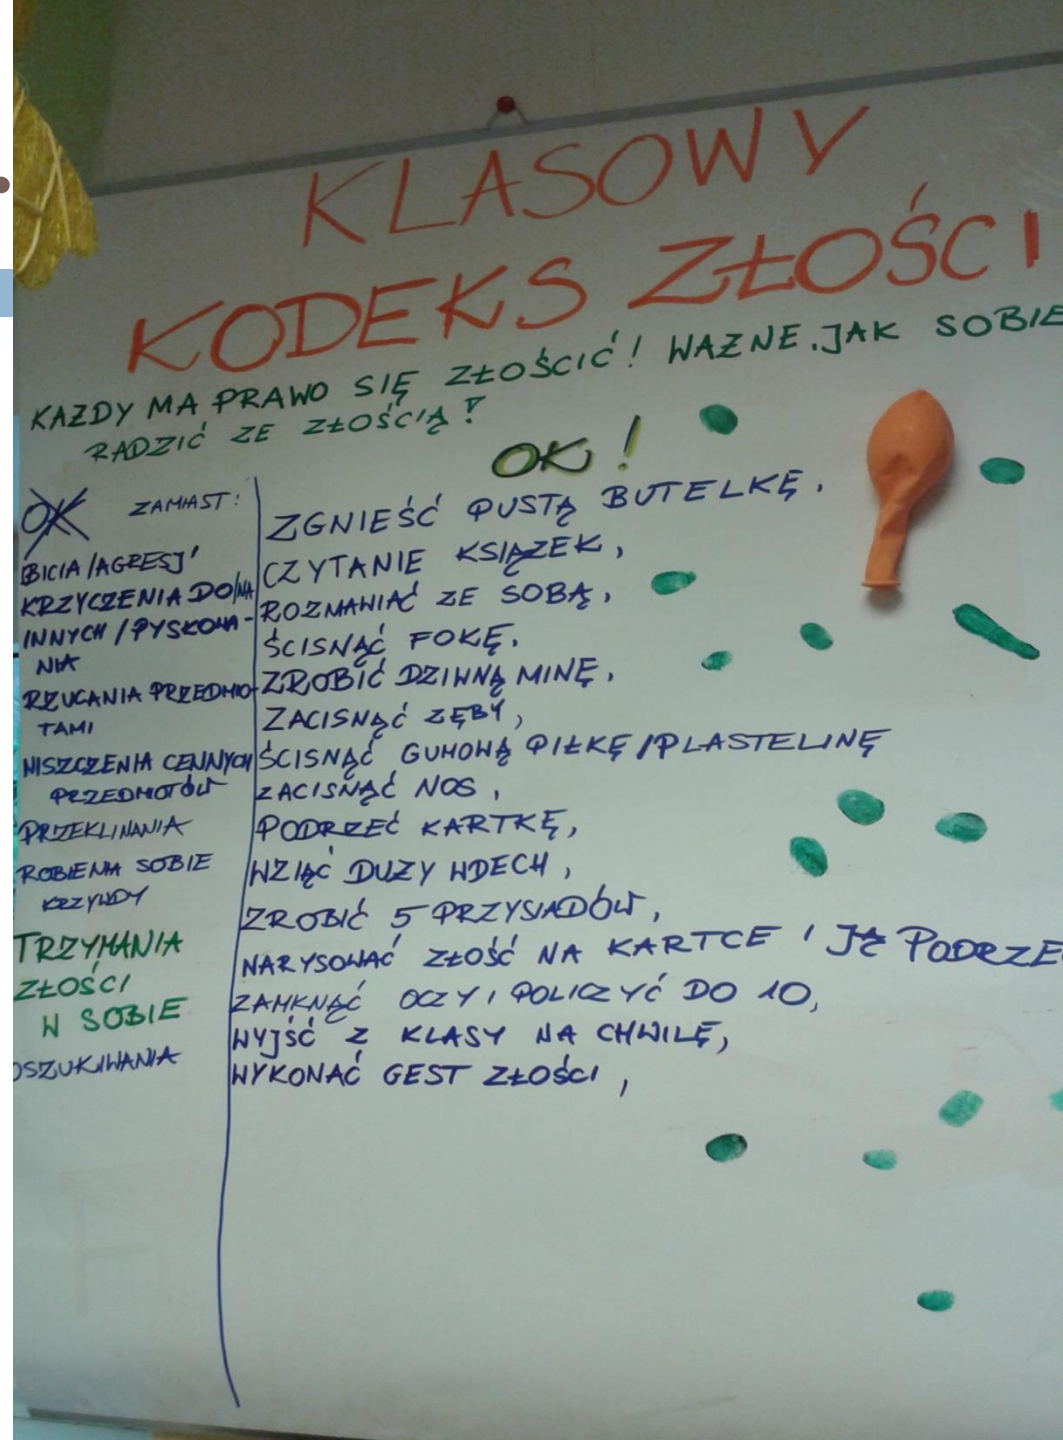 KLASOWY
KODEKS ZŁOŚCI
KAŻDY MA PRAWO SIĘ ZŁOŚCIĆ! WAŻNE, JAK SOBIE
RADZIĆ ZE ZŁOŚCIĄ!
OK!
OK ZAMIAST:
BICIA/AGRESJI
KRZYCZENIA DO/NA
INNYCH/PYSKOWA-
NIA
RZUCANIA PRZEDMIO-
TAMI
NISZCZENIA CENNYCH
PRZEDMIOTÓW
PRZEKLINANIA
ROBIENIA SOBIE
KRZYWDY
TRZYMANIA
ZŁOŚCI
W SOBIE
OSZUKIWANIA
ZGNIEŚĆ PUSTĄ BUTELKĘ,
CZYTANIE KSIĄŻEK,
ROZMAWIAĆ ZE SOBĄ,
ŚCISNĄĆ FOKĘ,
ZROBIĆ DZIWNĄ MINĘ,
ZACISNĄĆ ZĘBY,
ŚCISNĄĆ GUMOWĄ PIŁKĘ/PLASTELINĘ
ZACISNĄĆ NOS,
PODRZEĆ KARTKĘ,
WZIĄĆ DUŻY WDECH,
ZROBIĆ 5 PRZYSIADÓW,
NARYSOWAĆ ZŁOŚĆ NA KARTCE I JĄ PODRZE
ZAMKNĄĆ OCZY I POLICZYĆ DO 10,
WYJŚĆ Z KLASY NA CHWILĘ,
WYKONAĆ GEST ZŁOŚCI,